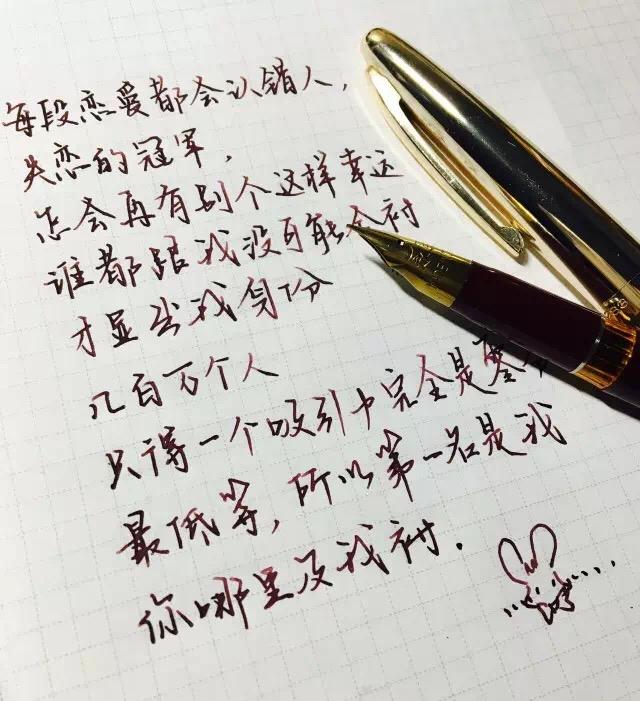 每段恋爱都会认错人，
失恋的冠军，
怎会再有别个这样幸运
谁都跟我没可能合衬
才显出我身份
几百万个人
只得一个吸引力完全是零
最低等，所以第一名是我
你哪里及我衬.